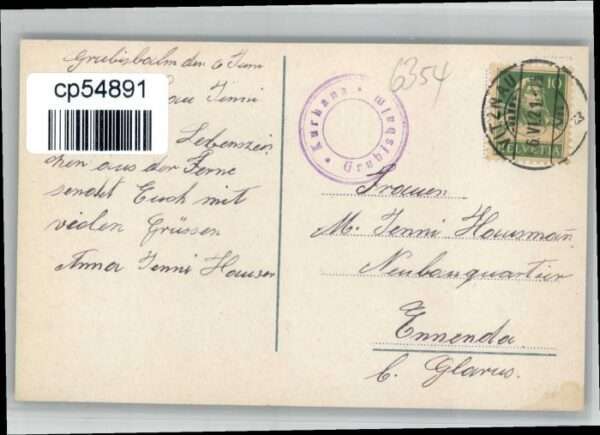 Grubisbalm den 6 Juni
cp54891
Jenni
Lebenszei-
chen aus der Ferne
sendet Euch mit
vielen Grüssen
Anna Jenni Hauser
Kurhaus Grubis
6354
VITZNAU
VI.21
10
HELVETIA
Frauen
M. Jenni Hausman̄
Neubauquartier
Ennenda
b. Glarus.